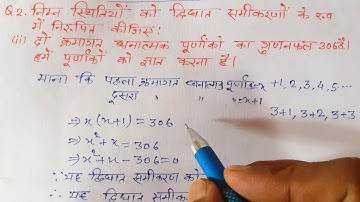 Q2. निम्न स्थितियों को द्विघात समीकरणों के रूप
में निरूपित कीजिए!
(ii) दो क्रमागत धनात्मक पूर्णांकों का गुणनफल 306 है।
हमें पूर्णांकों को ज्ञात करना है।
माना कि पहला क्रमागत धनात्मक पूर्णांक = x +1, 2, 3, 4, 5 ...
दूसरा " " " = x+1
3+1, 3+2, 3+3
⇒ x (x+1) = 306
⇒ x² + x = 306
⇒ x² + x - 306 = 0
∴ यह द्विघात समीकरण को
∴ यह द्विघात समीकरण